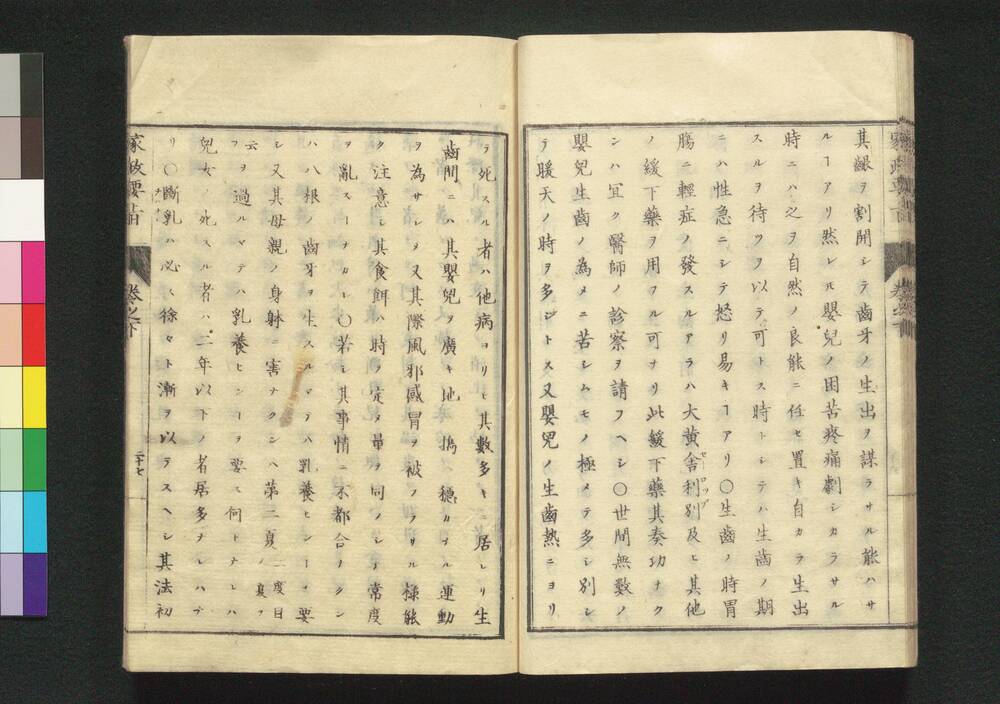 其齦ヲ割開シテ齒牙ノ生出ヲ謀ラサル能ハサ
ルヿアリ然レ𪜈嬰兒ノ困苦疼痛劇シカラサル
時ニハ之ヲ自然ノ良能ニ任セ置キ自カラ生出
スルヲ待ツヲ以テ可トス時トシテハ生齒ノ期
ニハ性急ニシテ怒リ易キヿアリ〇生齒ノ時胃
膓ニ輕症ノ發スルアラハ大黄舎利別及ヒ其他
セーロップ
ノ緩下藥ヲ用フル可ナリ此緩下藥其奏功ナク
ンハ冝ク醫師ノ診察ヲ請フヘシ〇世間無數ノ
嬰兒生齒ノ為メニ苦シムモノ極メテ多シ別シ
テ暖天ノ時ヲ多シトス又嬰兒ノ生齒熱ニヨリ
家政要旨 卷之下
ラ死スル者ハ他病ヨリモ其數多キニ居レリ生
齒間ニハ其嬰兒ヲ廣キ地
穩カナル運動
ヲ為サシメ又其際風邪感冒ヲ被フラサル様能
ク注意シ其食餌ハ時ヲ定メ量ヲ同フシ常度
ヲ亂スヿナカレ〇若シ其事情ニ不都合ナクン
ハ八根ノ齒牙ヲ生スルマテハ乳養センヿヲ要
シ又其母親ノ身躰ニ害ナクンハ第二夏
一度目ノ夏ヲ
云フヲ過ルマテハ乳養センヿヲ要ス何トナレハ
兒女ノ死スル者ハ二年以下ノ者居多ナレハナ
リ〇斷乳ハ必ス徐々ト漸ヲ以テスヘシ其法初
家政要旨 卷之下 二十七